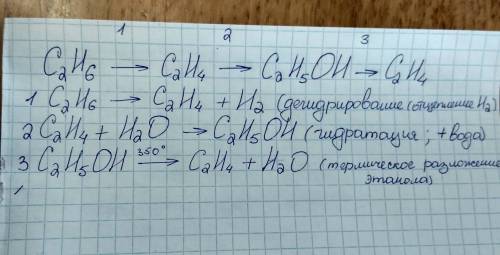 1 2 3
C₂H₆ → C₂H₄ → C₂H₅OH → C₂H₄
1 C₂H₆ → C₂H₄ + H₂ (дегидрирование (отщепление H₂)
2 C₂H₄ + H₂O → C₂H₅OH (гидратация; + вода)
3 C₂H₅OH 350° → C₂H₄ + H₂O (термическое разложение
этанола)